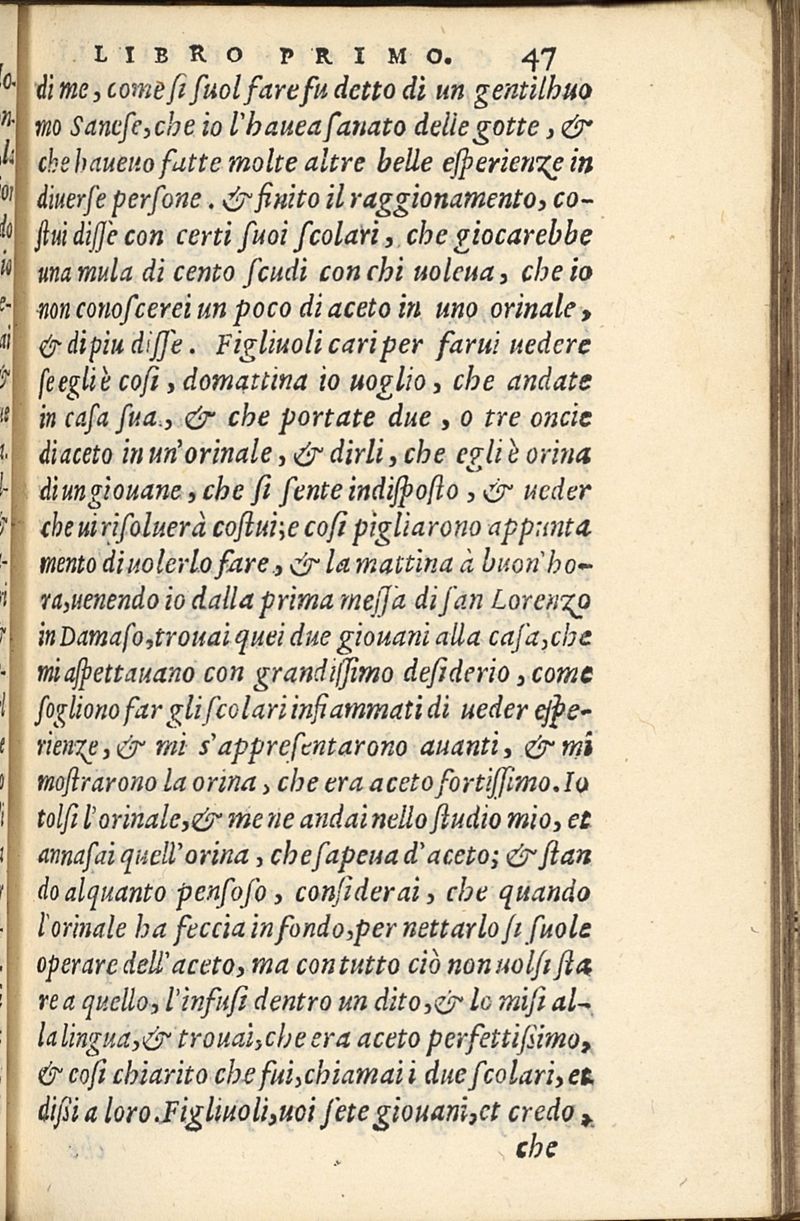 LIBRO PRIMO. 47
di me, come si suol fare fu detto di un gentilhuo
mo Sanese, che io l'hauea sanato delle gotte, &
che haueuo fatte molte altre belle esperienze in
diuerse persone. & finito il raggionamento, co-
stui disse con certi suoi scolari, che giocarebbe
una mula di cento scudi con chi uoleua, che io
non conoscerei un poco di aceto in uno orinale,
& di piu disse. Figliuoli cari per farui uedere
se egli è cosi, domattina io uoglio, che andate
in casa sua, & che portate due, o tre oncie
di aceto in un'orinale, & dirli, che egli è orina
di un giouane, che si sente indisposto, & ueder
che ui risoluerà costui; e cosi pigliarono appunta
mento di uolerlo fare, & la mattina à buon'ho-
ra, uenendo io dalla prima messa di san Lorenzo
in Damaso, trouai quei due giouani alla casa, che
mi aspettauano con grandissimo desiderio, come
sogliono far gli scolari infiammati di ueder espe-
rienze, & mi s'appresentarono auanti, & mi
mostrarono la orina, che era aceto fortissimo. Io
tolsi l'orinale, & me ne andai nello studio mio, et
annasai quell'orina, che sapeua d'aceto; & stan
do alquanto pensoso, considerai, che quando
l'orinale ha feccia in fondo, per nettarlo si suole
operare dell'aceto, ma con tutto ciò non uolsi sta
re a quello, l'infusi dentro un dito, & lo misi al-
la lingua, & trouai, che era aceto perfettissimo,
& cosi chiarito che fui, chiamai i due scolari, et
dissi a loro. Figliuoli, uoi sete giouani, et credo,
che